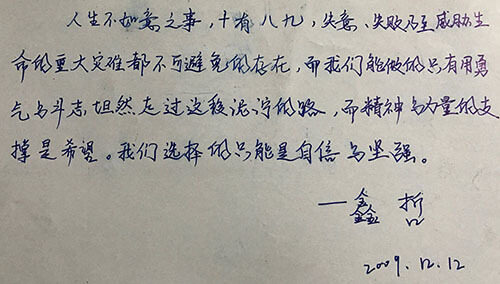 人生不如意之事，十有八九，失意、失败乃至威胁生
命的重大灾难都不可避免的存在，而我们能做的只有用勇
气与斗志，坦然走过这段泥泞的路，而精神与力量的支
撑是希望。我们选择的只能是自信与坚强。
—鑫哲
2009.12.12